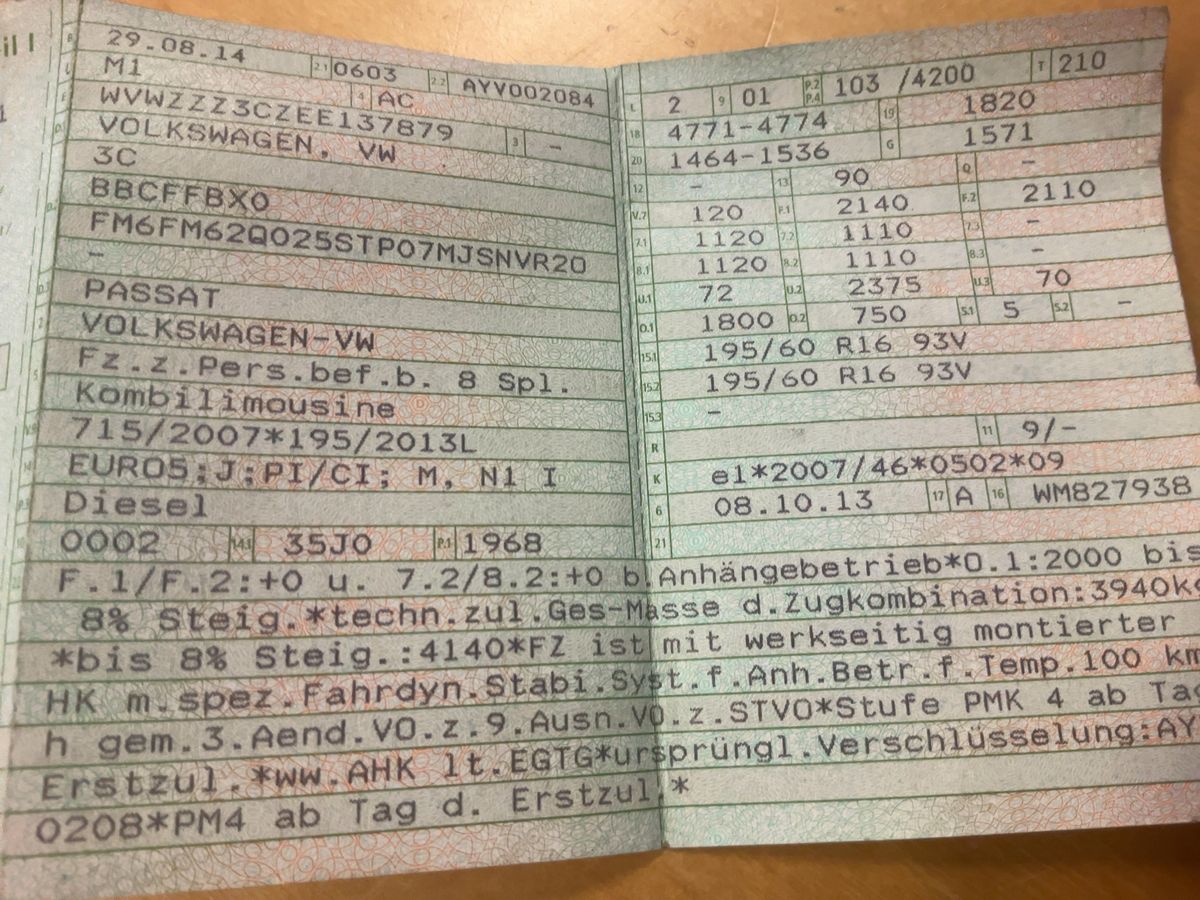 il I
B 29.08.14 2.1 0603 2.2 AYV002084
J M1 4 AC
E WVWZZZ3CZEE137879 3 -
D.1 VOLKSWAGEN, VW
3C
D.2 BBCFFBX0
FM6FM62Q025STP07MJSNVR20
-
D.3 PASSAT
2 VOLKSWAGEN-VW
5 Fz.z.Pers.bef.b. 8 Spl.
Kombilimousine
V.9 715/2007*195/2013L
14 EURO5;J;PI/CI; M, N1 I
P.3 Diesel
10 0002 14.1 35J0 P.1 1968
L 2 9 01 P.2 P.4 103 /4200 T 210
18 4771-4774 19 1820
20 1464-1536 G 1571
12 - 13 90 Q -
V.7 120 F.1 2140 F.2 2110
7.1 1120 7.2 1110 7.3 -
8.1 1120 8.2 1110 8.3 -
U.1 72 U.2 2375 U.3 70
O.1 1800 O.2 750 S.1 5 S.2 -
15.1 195/60 R16 93V
15.2 195/60 R16 93V
15.3 -
R 11 9/-
K e1*2007/46*0502*09
6 08.10.13 17 A 16 WM827938
21
22 F.1/F.2:+0 u. 7.2/8.2:+0 b.Anhängebetrieb*O.1:2000 bis
8% Steig.*techn.zul.Ges-Masse d.Zugkombination:3940kg
*bis 8% Steig.:4140*FZ ist mit werkseitig montierter
HK m.spez.Fahrdyn.Stabi.Syst.f.Anh.Betr.f.Temp.100 km
h gem.3.Aend.VO.z.9.Ausn.VO.z.STVO*Stufe PMK 4 ab Tag
Erstzul.*ww.AHK lt.EGTG*ursprüngl.Verschlüsselung:AY
0208*PM4 ab Tag d. Erstzul.*